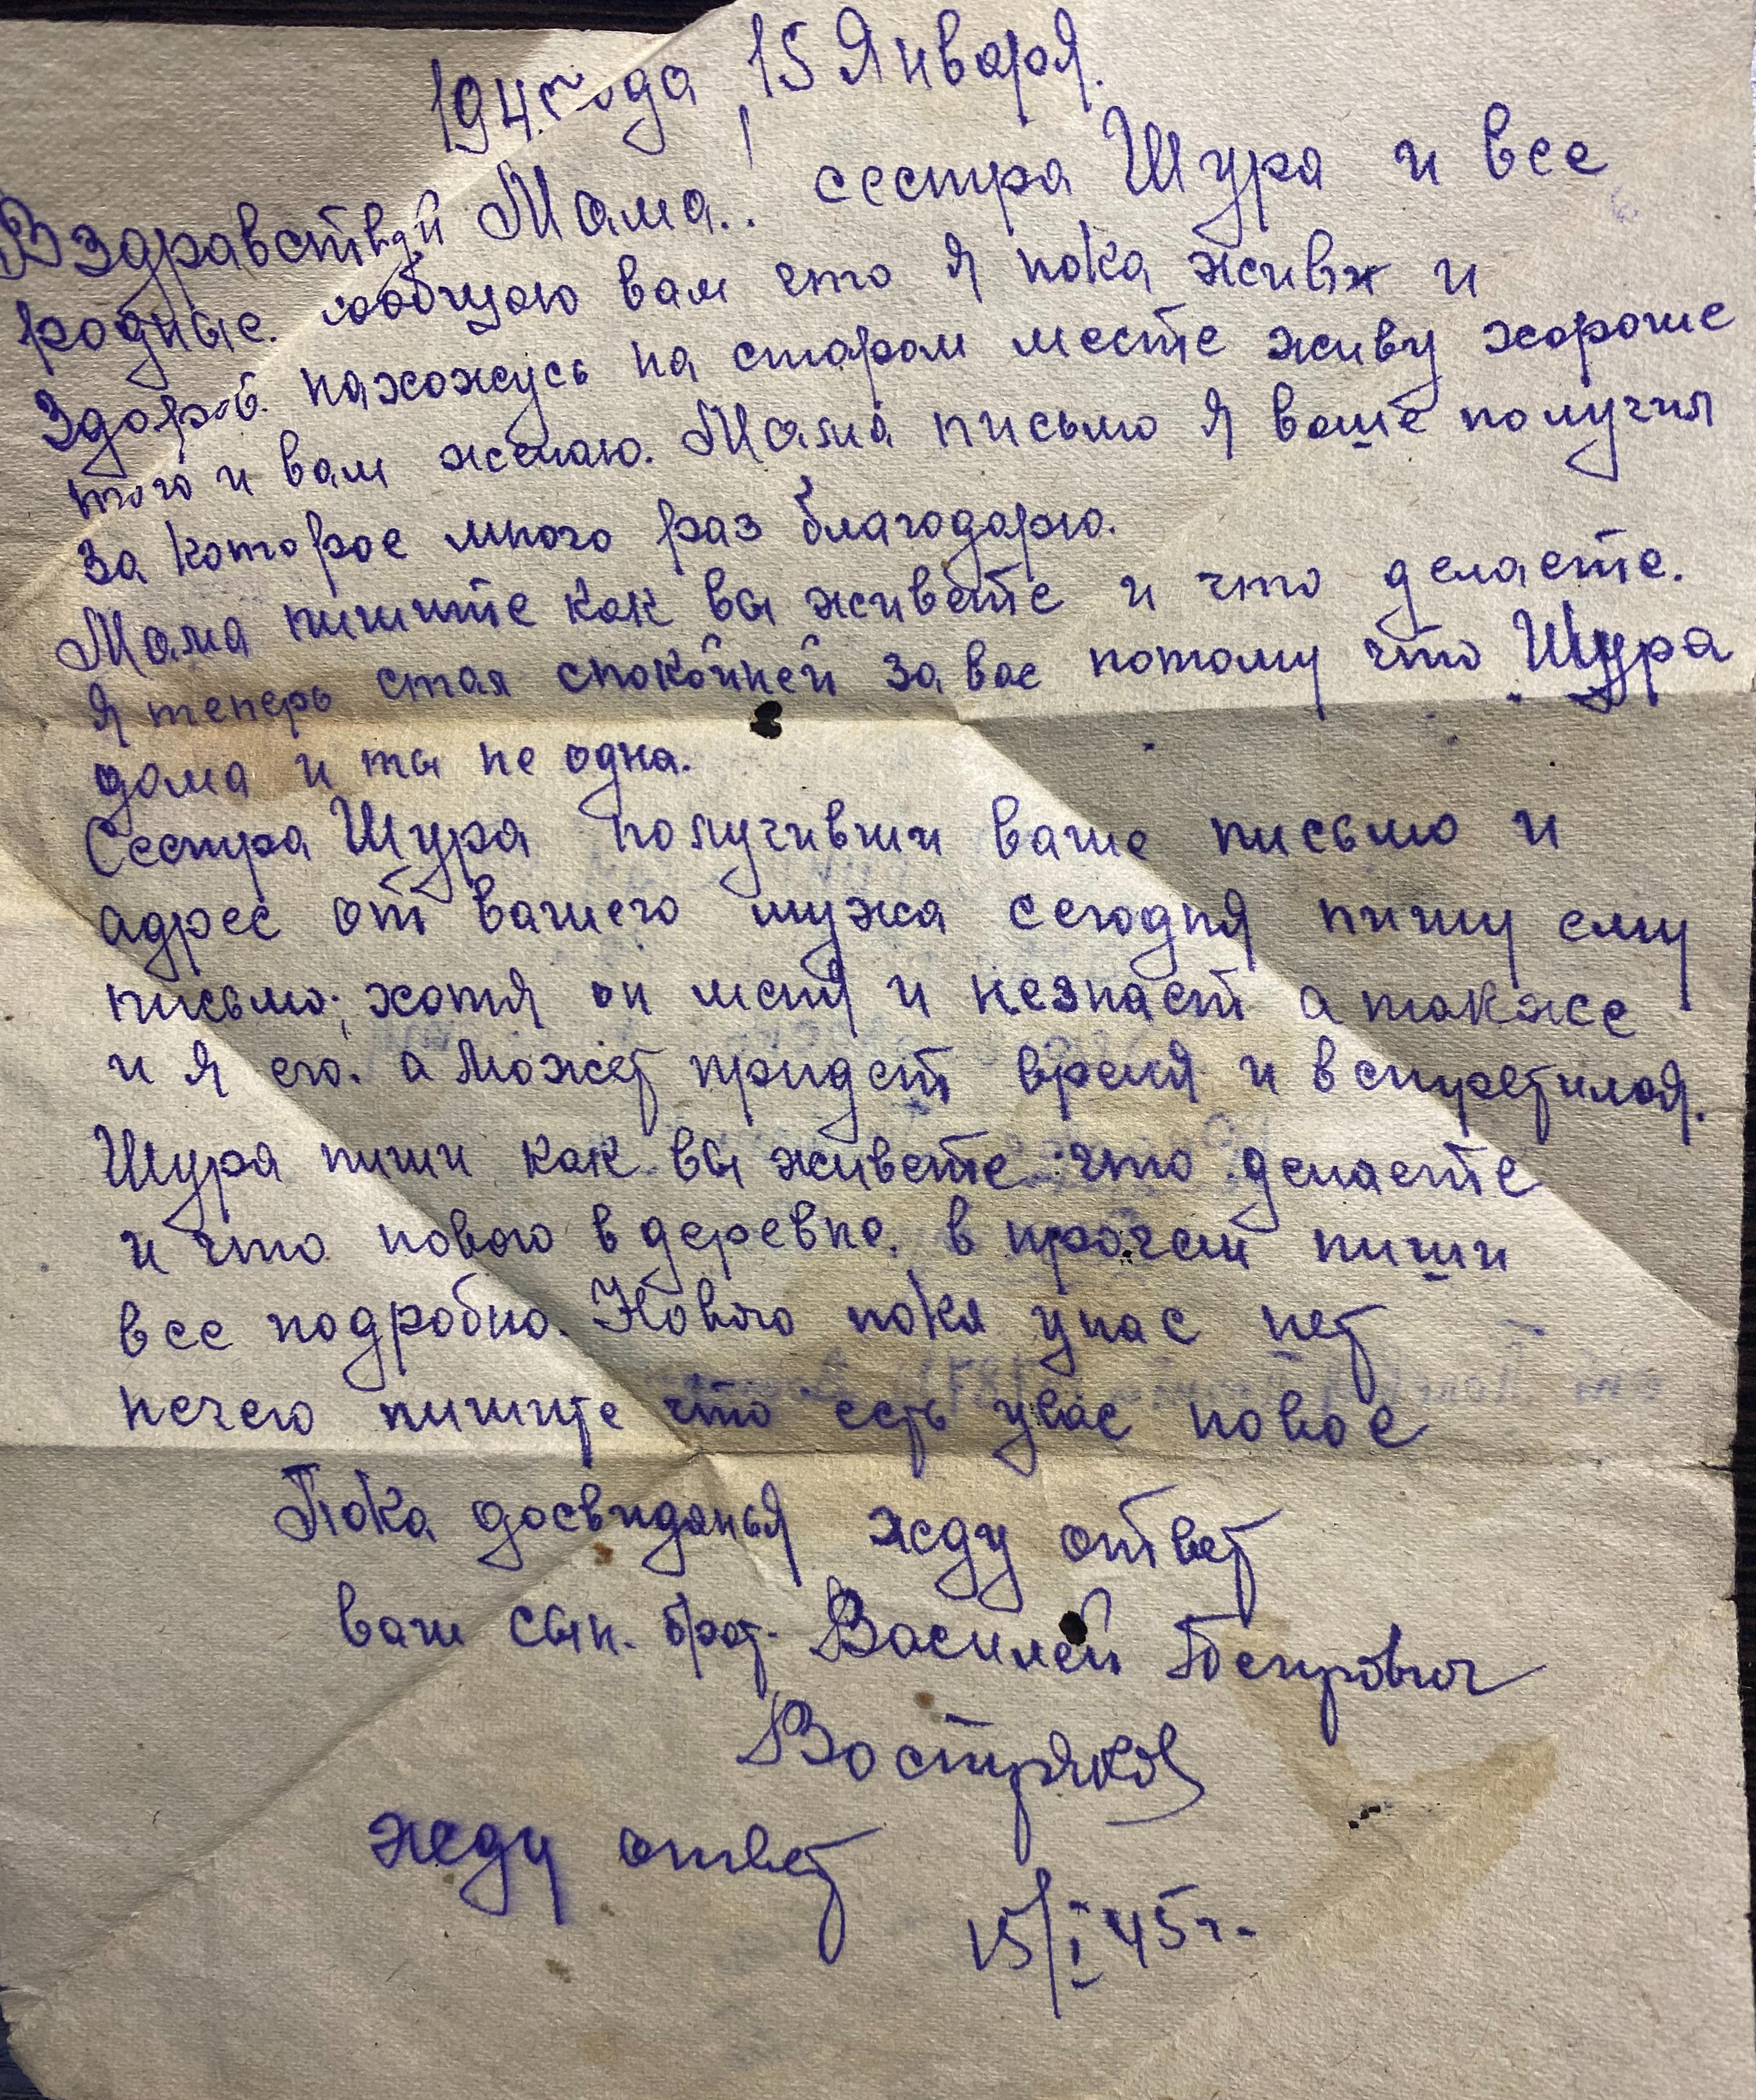 1945 года 15 Января.
Вздравствуй Мама.! сестра Шура и все
родные. сообщаю вам что я пока живж и
здоров. нахожусь на старом месте живу хороше
того и вам желаю. Мама письмо я ваше получил
за которое много раз благодарю.
Мама пишите как вы живете и что делаете.
Я теперь стал спокойней за вас потому что Шура
дома и ты не одна.
Сестра Шура получивши ваше письмо и
адрес от вашего мужа сегодня пишу ему
письмо; хотя он меня и незнает а также
и я его. а может придет время и встретимся.
Шура пиши как вы живете что делаете
и что нового в деревне. в прочем пиши
все подробно. Нового пока унас нет
нечего пишите что есть увас новое
Пока досвиданья жду ответ
ваш сын. брат. Василей Петрович
Востряков
жду ответ
15/I 45г.